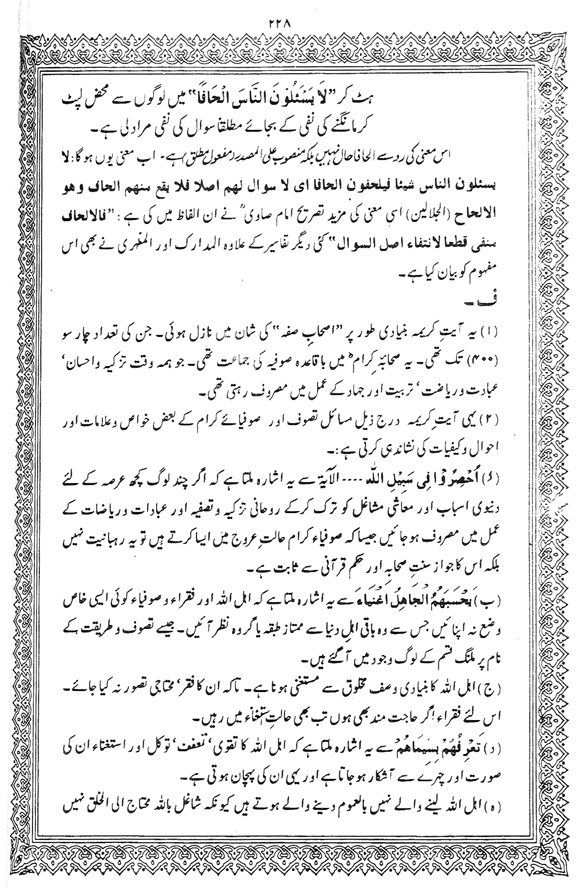 ۲۲۸
ہٹ کر ”لَا یَسْئَلُوْنَ النَّاسَ اِلْحَافًا“ میں لوگوں سے محض لپٹ
کر مانگنے کی نفی کے بجائے مطلقاً سوال کی نفی مراد لی ہے۔
اس معنی کی رو سے الحافا حال نہیں بلکہ منصوب علی المصدر یا مفعول مطلق ہے۔ اب معنی یوں ہو گا: لا
یسئلون الناس شیئا فیلحفون الحافا ای لا سوال لھم اصلا فلا یقع منھم الحاف وھو
الالحاح (الجلالین) اسی معنی کی مزید تصریح امام صاویؒ نے ان الفاظ میں کی ہے: ”فالالحاف
منفی قطعا لانتفاء اصل السوال“ کئی دیگر تفاسیر کے علاوہ المدارک اور المظہری نے بھی اس
مفہوم کو بیان کیا ہے۔
ف۔
(۱) یہ آیتِ کریمہ بنیادی طور پر ”اصحابِ صفہ“ کی شان میں نازل ہوئی۔ جن کی تعداد چار سو
(۴۰۰) تک تھی۔ یہ صحابۂ کرامؓ میں باقاعدہ صوفیہ کی جماعت تھی۔ جو ہمہ وقت تزکیہ واحسان‘
عبادت و ریاضت‘ تربیت اور جہاد کے عمل میں مصروف رہتی تھی۔
(۲) یہی آیتِ کریمہ درج ذیل مسائل تصوف اور صوفیائے کرام کے بعض خواص و علامات اور
احوال و کیفیات کی نشاندہی کرتی ہے:۔
(ا) اُحْصِرُوْا فِیْ سَبِیْلِ اللّٰہ ---- الآیۃ سے یہ اشارہ ملتا ہے کہ اگر چند لوگ کچھ عرصہ کے لئے
دنیوی اسباب اور معاشی مشاغل کو ترک کر کے روحانی تزکیہ و تصفیہ اور عبادات و ریاضات کے
عمل میں مصروف ہو جائیں جیسا کہ صوفیاء کرام حالتِ عروج میں ایسا کرتے ہیں تو یہ رہبانیت نہیں
بلکہ اس کا جواز سنتِ صحابہ اور حکمِ قرآنی سے ثابت ہے۔
(ب) یَحْسَبُھُمُ الْجَاھِلُ اَغْنِیَاءَ سے یہ اشارہ ملتا ہے کہ اہل اللہ اور فقراء و صوفیاء کوئی ایسی خاص
وضع نہ اپنائیں جس سے وہ باقی اہلِ دنیا سے ممتاز طبقہ یا گروہ نظر آئیں۔ جیسے تصوف و طریقت کے
نام پر ملنگ قسم کے لوگ وجود میں آ گئے ہیں۔
(ج) اہل اللہ کا بنیادی وصف مخلوق سے مستغنی ہونا ہے۔ تاکہ ان کا فقر‘ محتاجی تصور نہ کیا جائے۔
اس لئے فقراء اگر حاجت مند بھی ہوں تب بھی حالتِ استغناء میں رہیں۔
(د) تَعْرِفُھُمْ بِسِیْمَاھُمْ سے یہ اشارہ ملتا ہے کہ اہل اللہ کا تقویٰ‘ تعفف‘ توکل اور استغناء ان کی
صورت اور چہرے سے آشکار ہو جاتا ہے اور یہی ان کی پہچان ہوتی ہے۔
(ہ) اہل اللہ لینے والے نہیں بالعموم دینے والے ہوتے ہیں کیونکہ شاغل باللہ محتاج الی الخلق نہیں